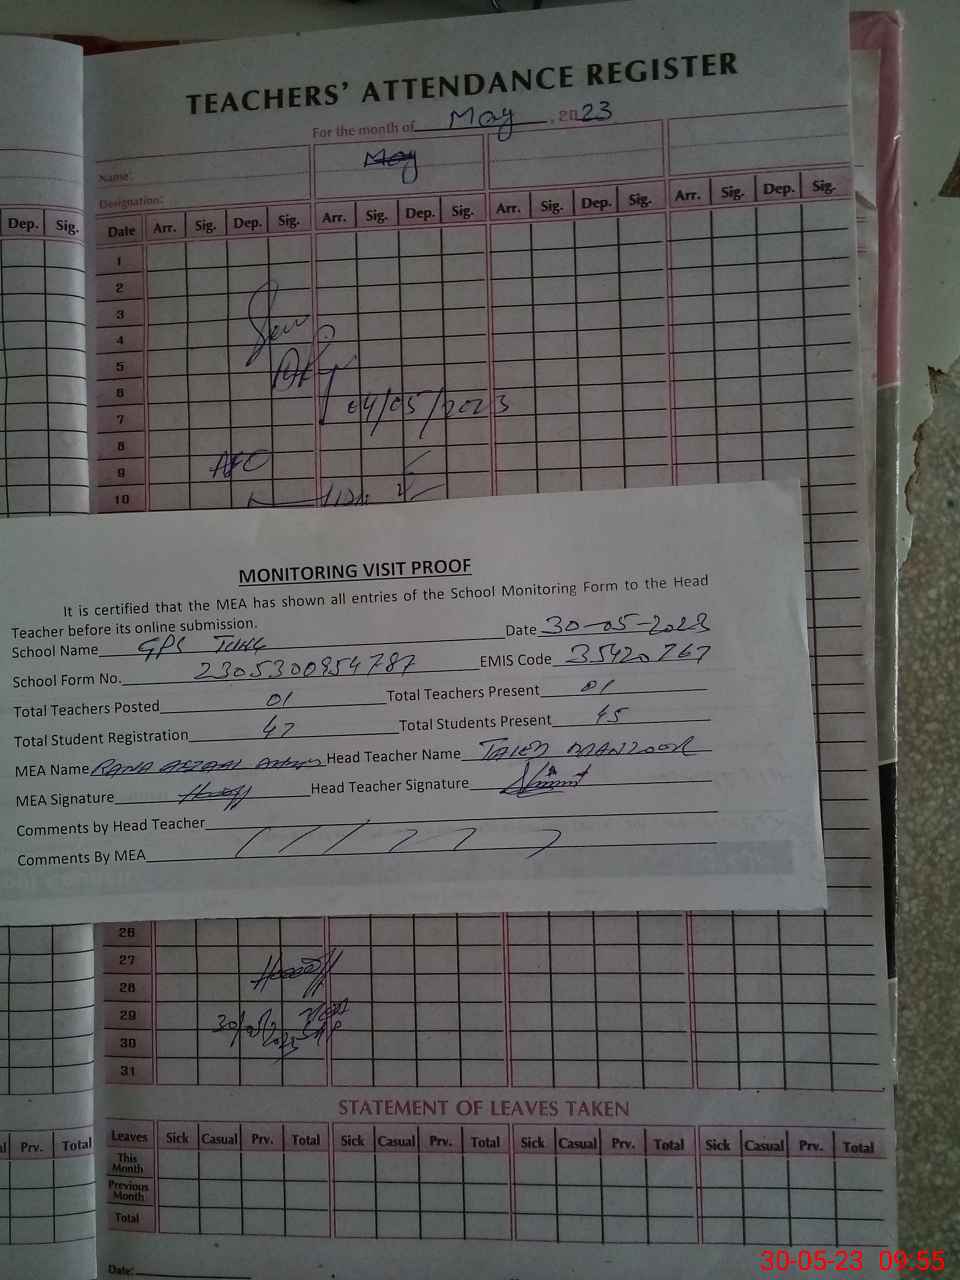 TEACHERS' ATTENDANCE REGISTER
For the month of May, 2023
May
Name:
Designation:
Dep. Sig. Date Arr. Sig. Dep. Sig. Arr. Sig. Dep. Sig. Arr. Sig. Dep. Sig. Arr. Sig. Dep. Sig.
1
2
3
4
5
6
7 04/05/2023
8
9
10
MONITORING VISIT PROOF
It is certified that the MEA has shown all entries of the School Monitoring Form to the Head
Teacher before its online submission.
School Name GPS Date 30-05-2023
School Form No. 2305300954787 EMIS Code 35420767
Total Teachers Posted 01 Total Teachers Present 01
Total Student Registration 47 Total Students Present 45
MEA Name RANA Head Teacher Name
MEA Signature Head Teacher Signature
Comments by Head Teacher
Comments By MEA
26
27
28
29
30
31
STATEMENT OF LEAVES TAKEN
Prv. Total Leaves Sick Casual Prv. Total Sick Casual Prv. Total Sick Casual Prv. Total Sick Casual Prv. Total
This
Month
Previous
Month
Total
Date:
30-05-23 09:55